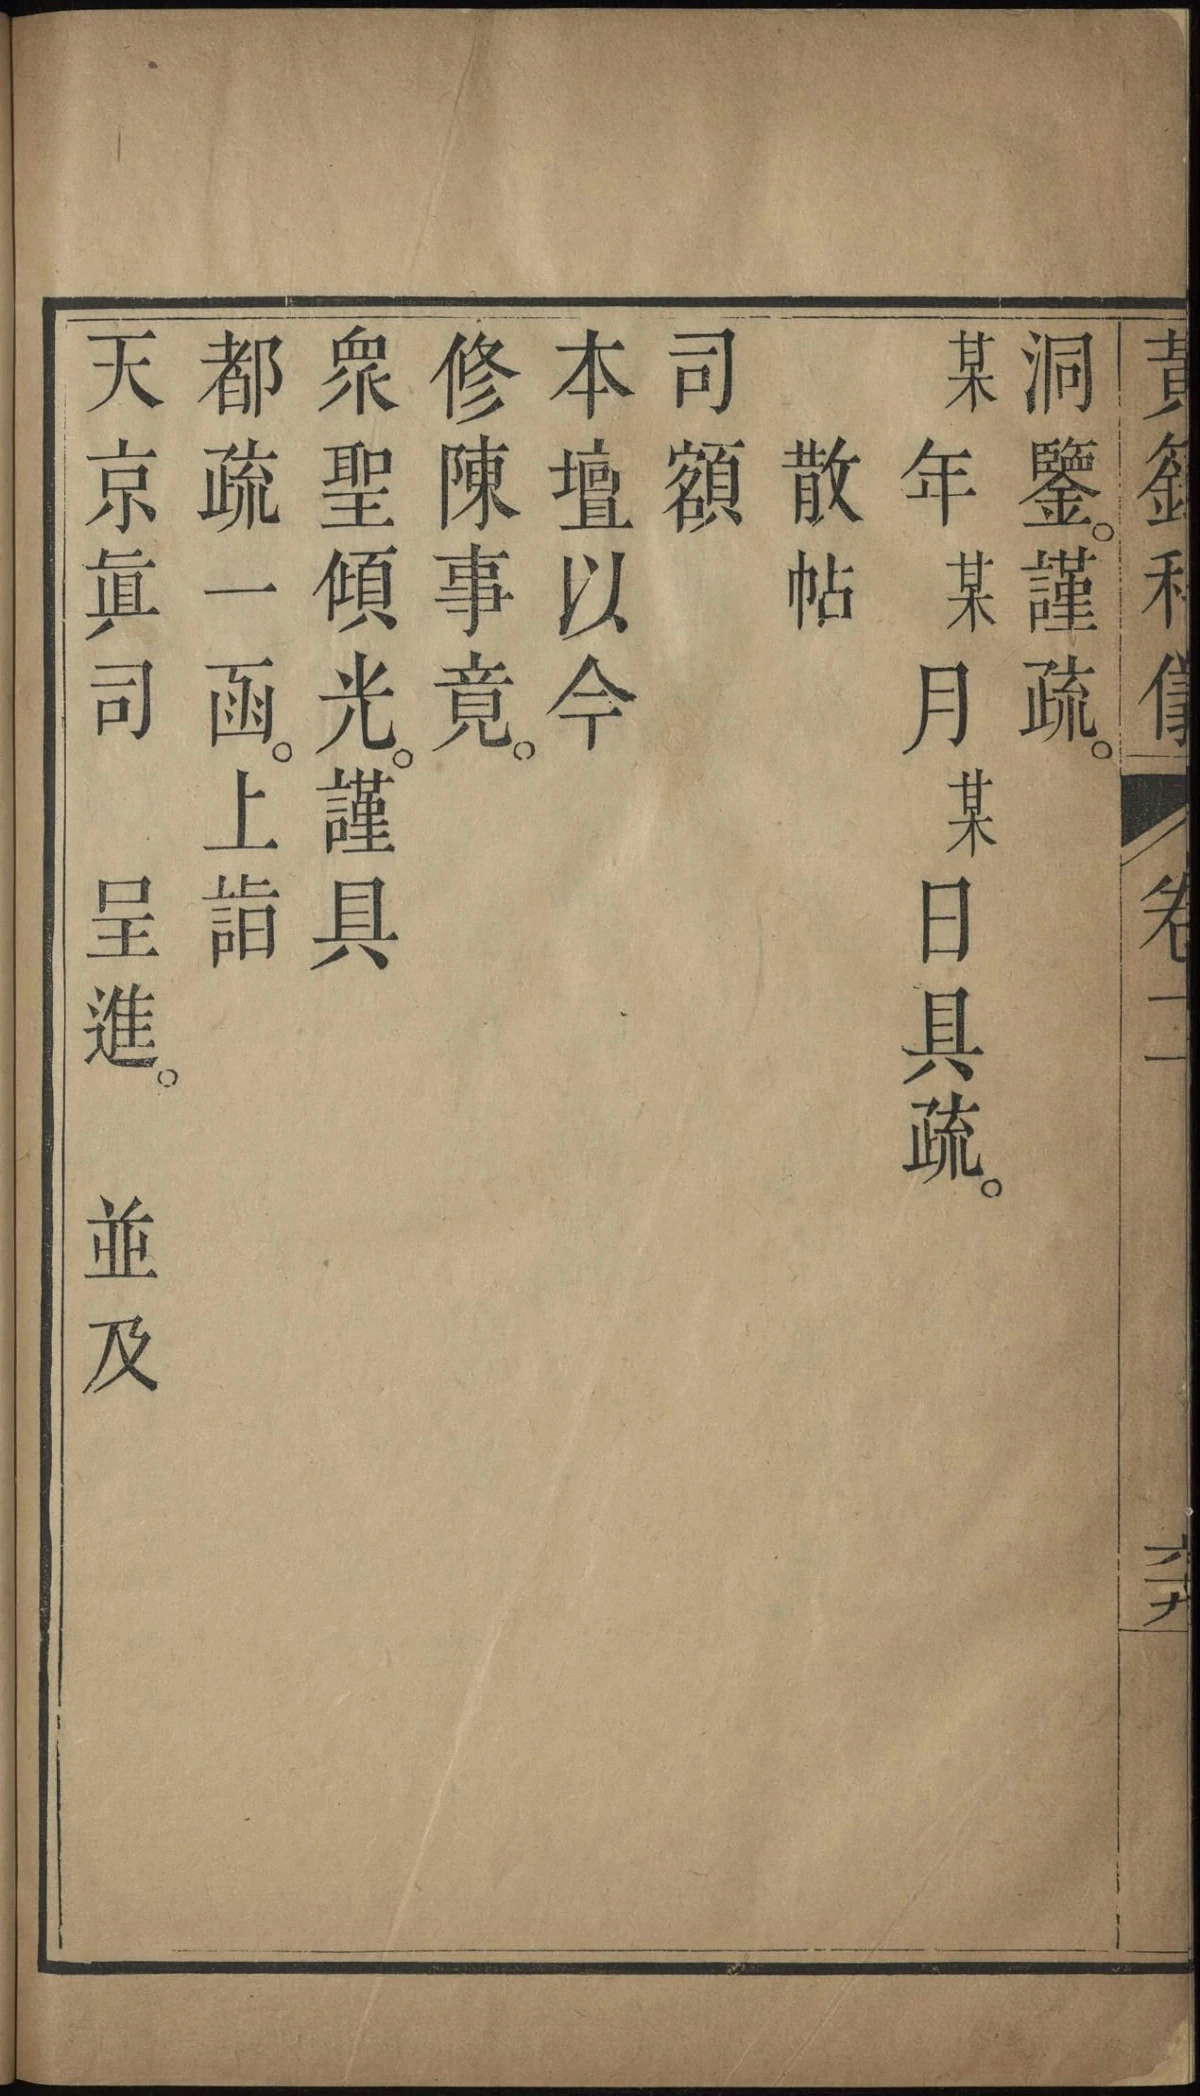 黃籙科儀 卷十二 六九
洞鑒。謹疏。
某年某月某日具疏。
散帖
司額
本壇以今
修陳事竟。
眾聖傾光。謹具
都疏一函。上詣
天京眞司 呈進。 並及